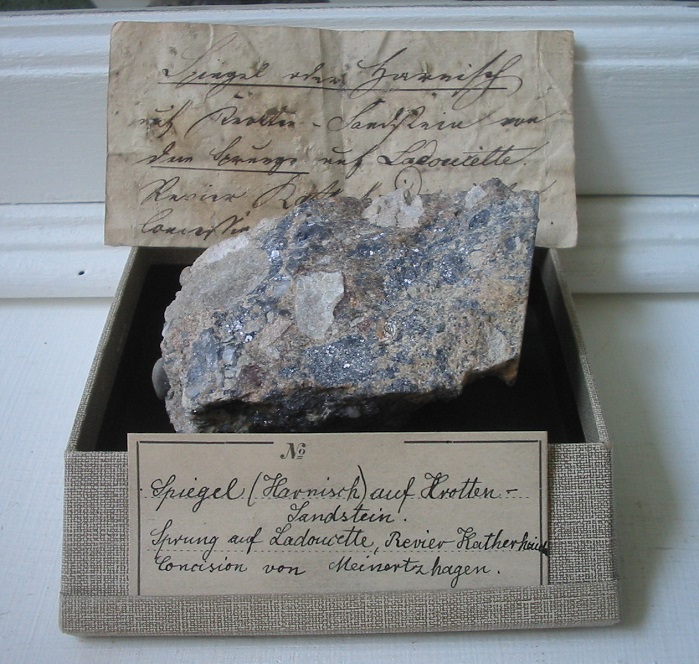 Spiegel oder Harnisch
auf Krotten-Sandstein von
dem Sprunge auf Ladoucette.
Revier
Concession
No
Spiegel (Harnisch) auf Krotten-
Sandstein.
Sprung auf Ladoucette, Revier
Concision von Meinertzhagen.